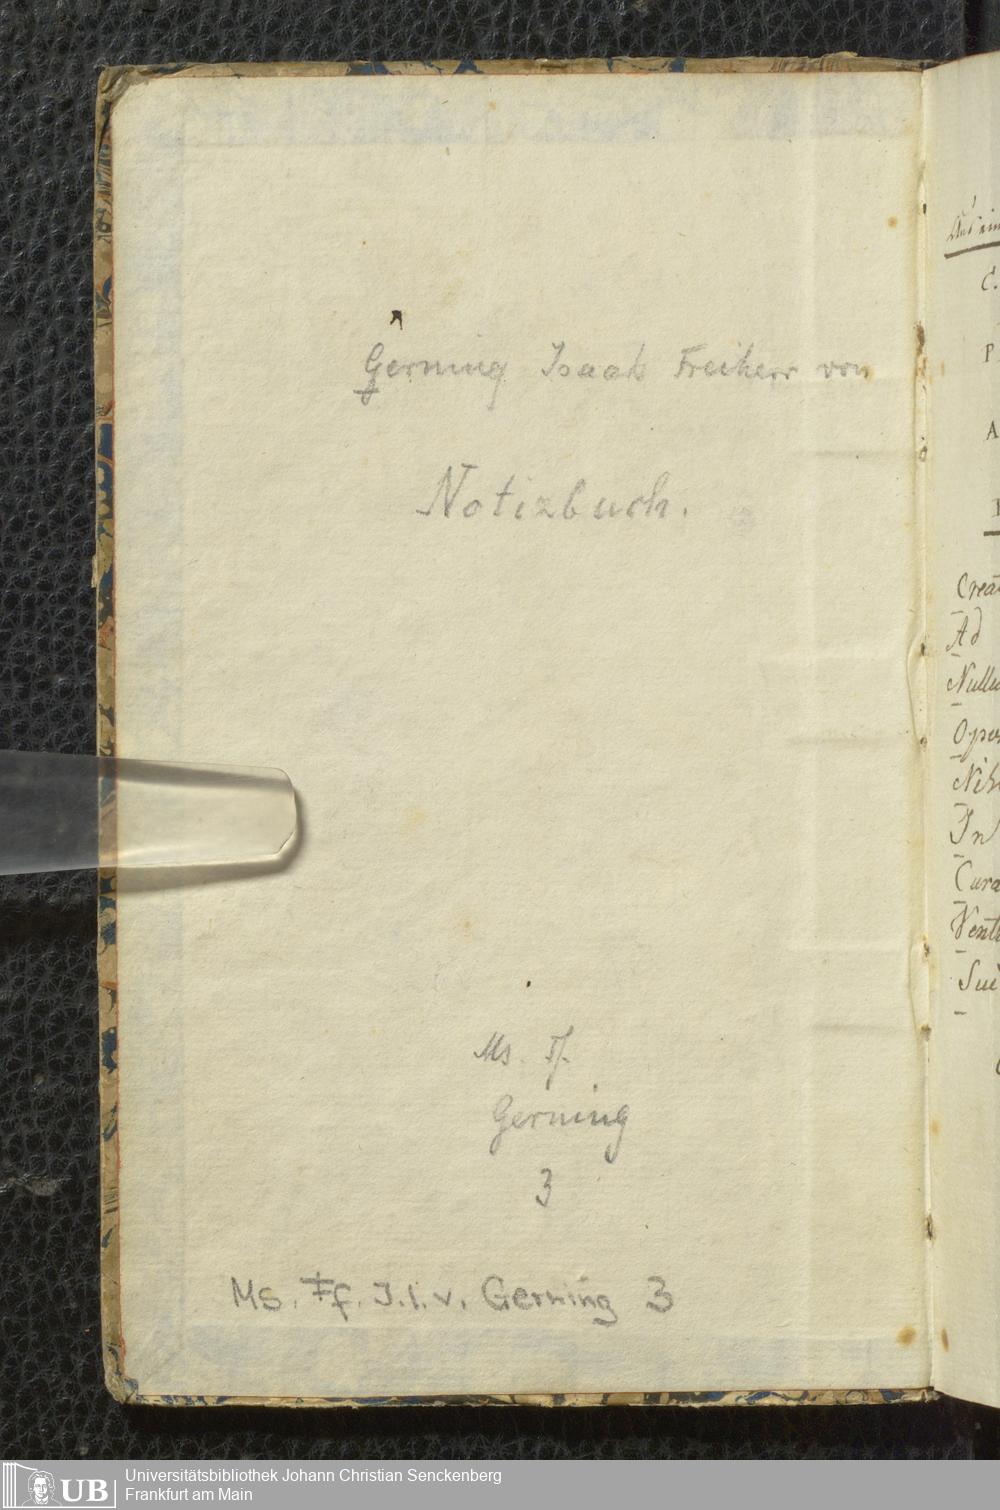 Gerning Isaak Freiherr von
Notizbuch.
Ms. Ff.
Gerning
3
Ms. Ff. J. I. v. Gerning 3
Aus ein
C.
P
A
Crea
Ad
Nullu
Oper
Nih
In
Cura
Vent
Sui
UB
Universitätsbibliothek Johann Christian Senckenberg
Frankfurt am Main